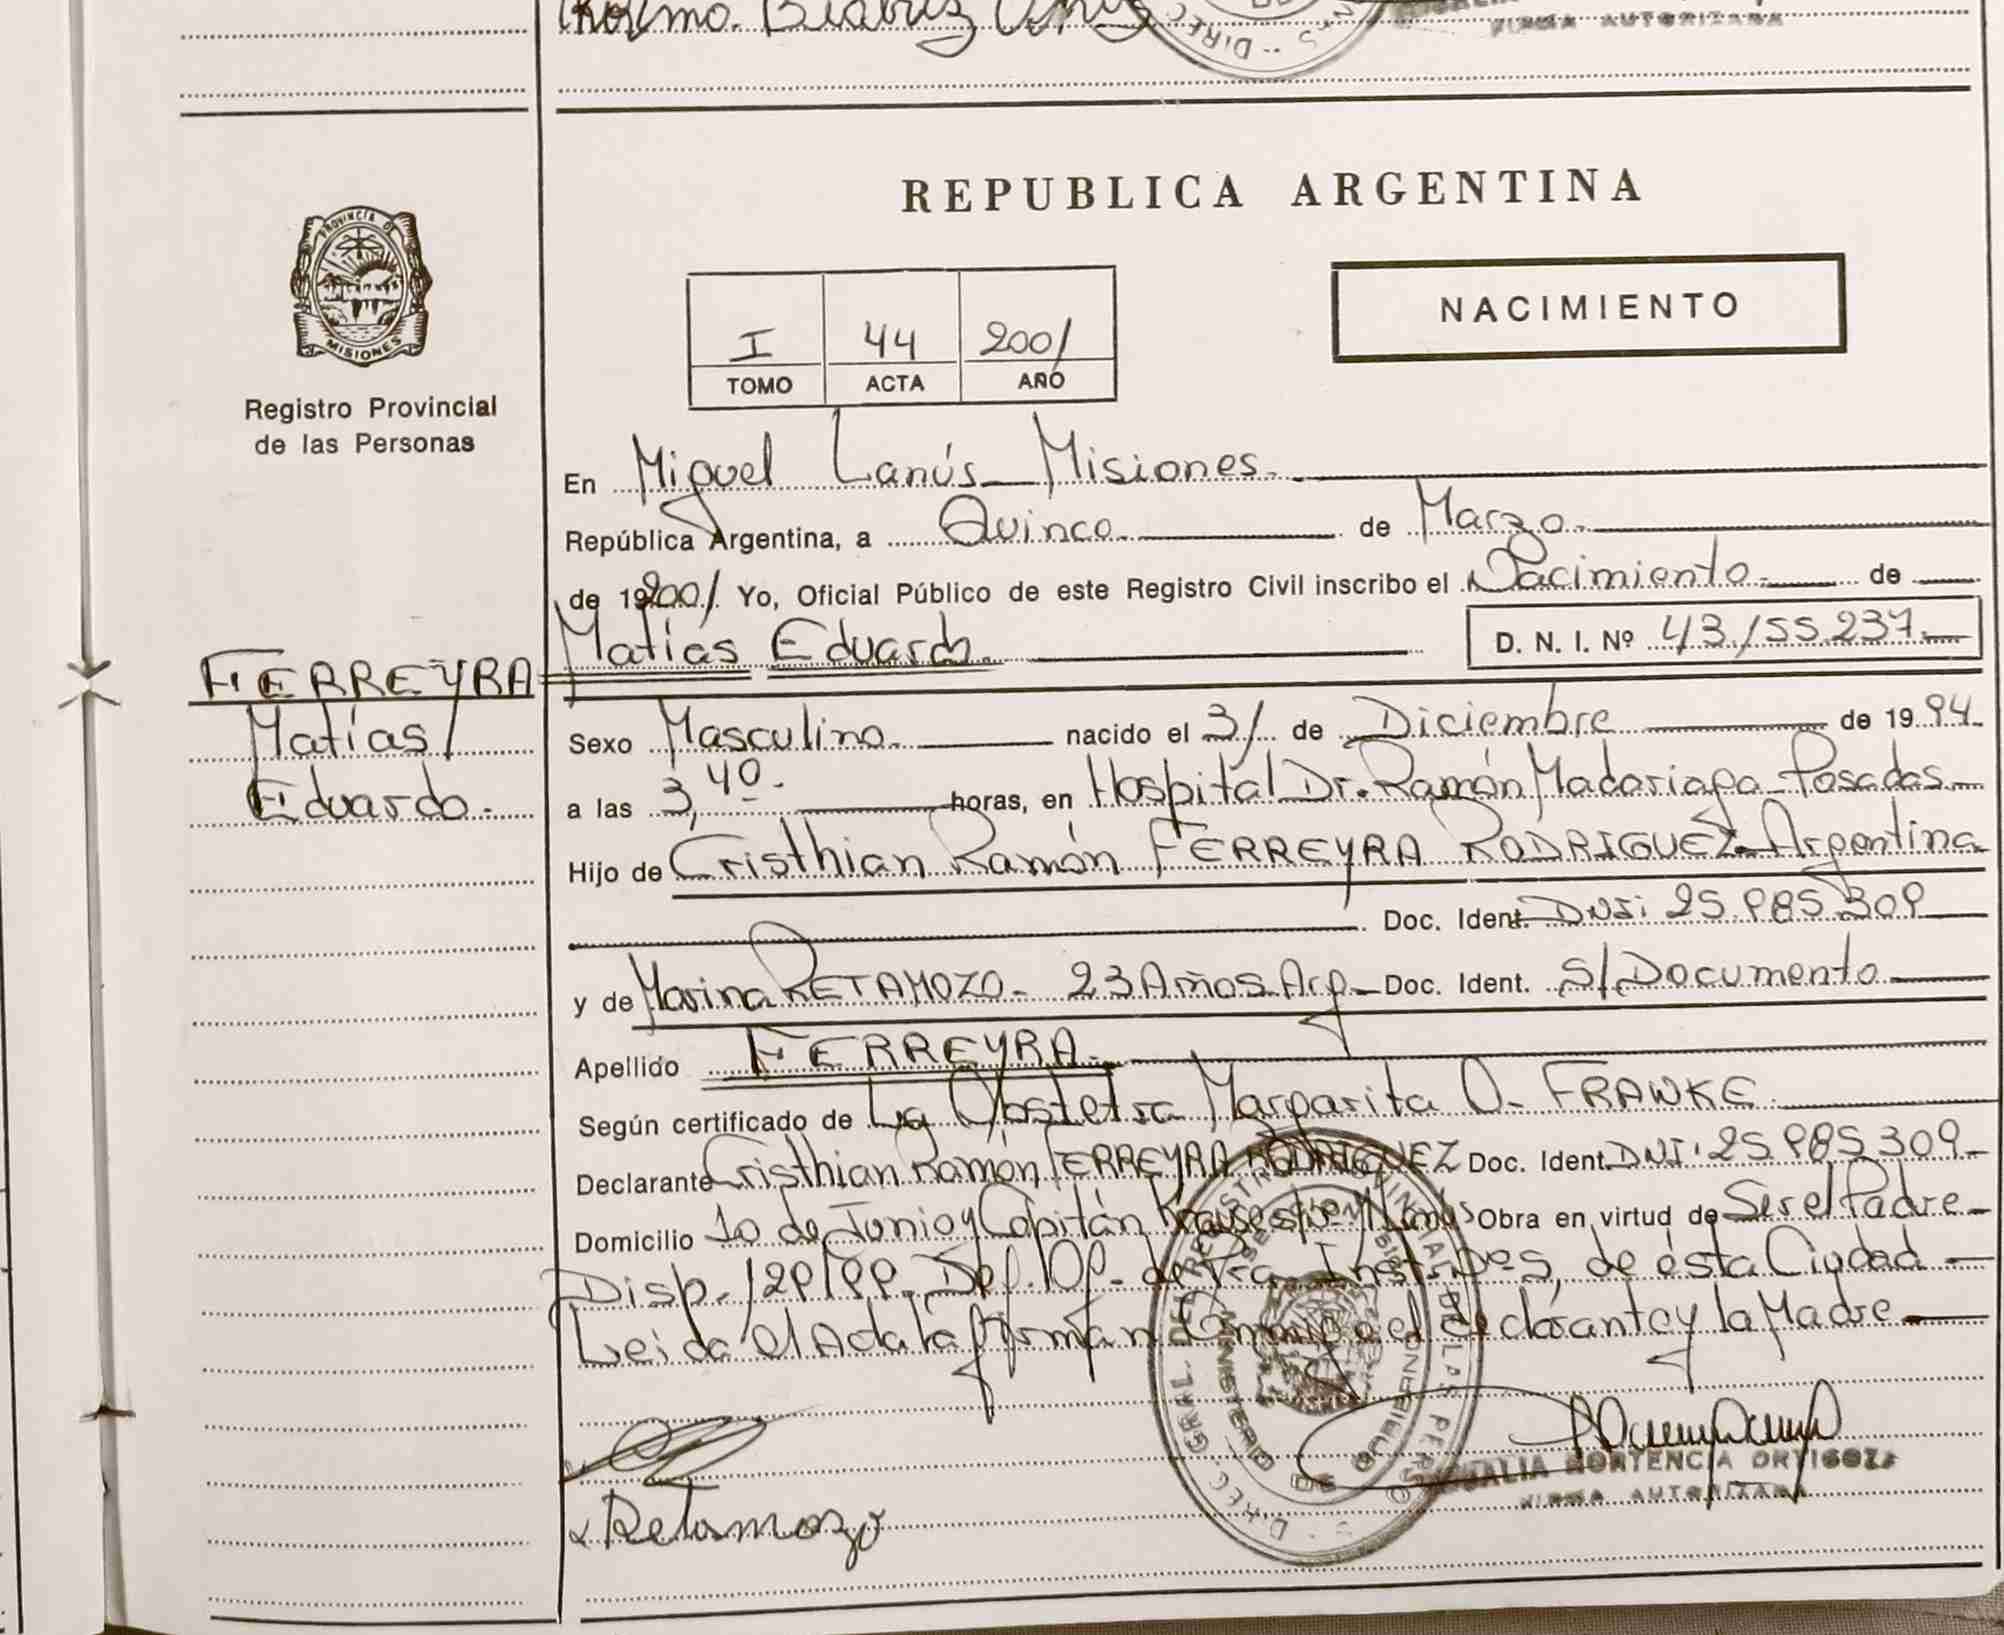 FIRMA AUTORIZADA
REPUBLICA ARGENTINA
NACIMIENTO
PROVINCIA DE
MISIONES
Registro Provincial
de las Personas
I 44 2001
TOMO ACTA AÑO
En Miguel Lanús Misiones.
República Argentina, a Quince de Marzo
de 19 2001 Yo, Oficial Público de este Registro Civil inscribo el Nacimiento de
Matías Eduardo. D. N. I. Nº 43.155.237.
FERREYRA
Matías
Eduardo.
Sexo Masculino. nacido el 31 de Diciembre de 19 94.
a las 3,40. horas, en Hospital Dr. Ramón Madariaga Posadas
Hijo de Cristhian Ramón FERREYRA RODRIGUEZ Argentina
Doc. Ident. DNI: 25.985.309
y de Marina RETAMOZO - 23 Años Arg. Doc. Ident. S/Documento
Apellido FERREYRA.
Según certificado de La Obstetra Margarita O. FRANKE
Declarante Cristhian Ramón FERREYRA RODRIGUEZ Doc. Ident. DNI: 25.985.309
Domicilio 10 de Junio y Capitán Obra en virtud de Ser el Padre
Disp. de ésta Ciudad
Leida el Acta la firman Conmigo el declarante y la Madre
Retamozo
HORTENCIA ORTIGOZA
FIRMA AUTORIZADA